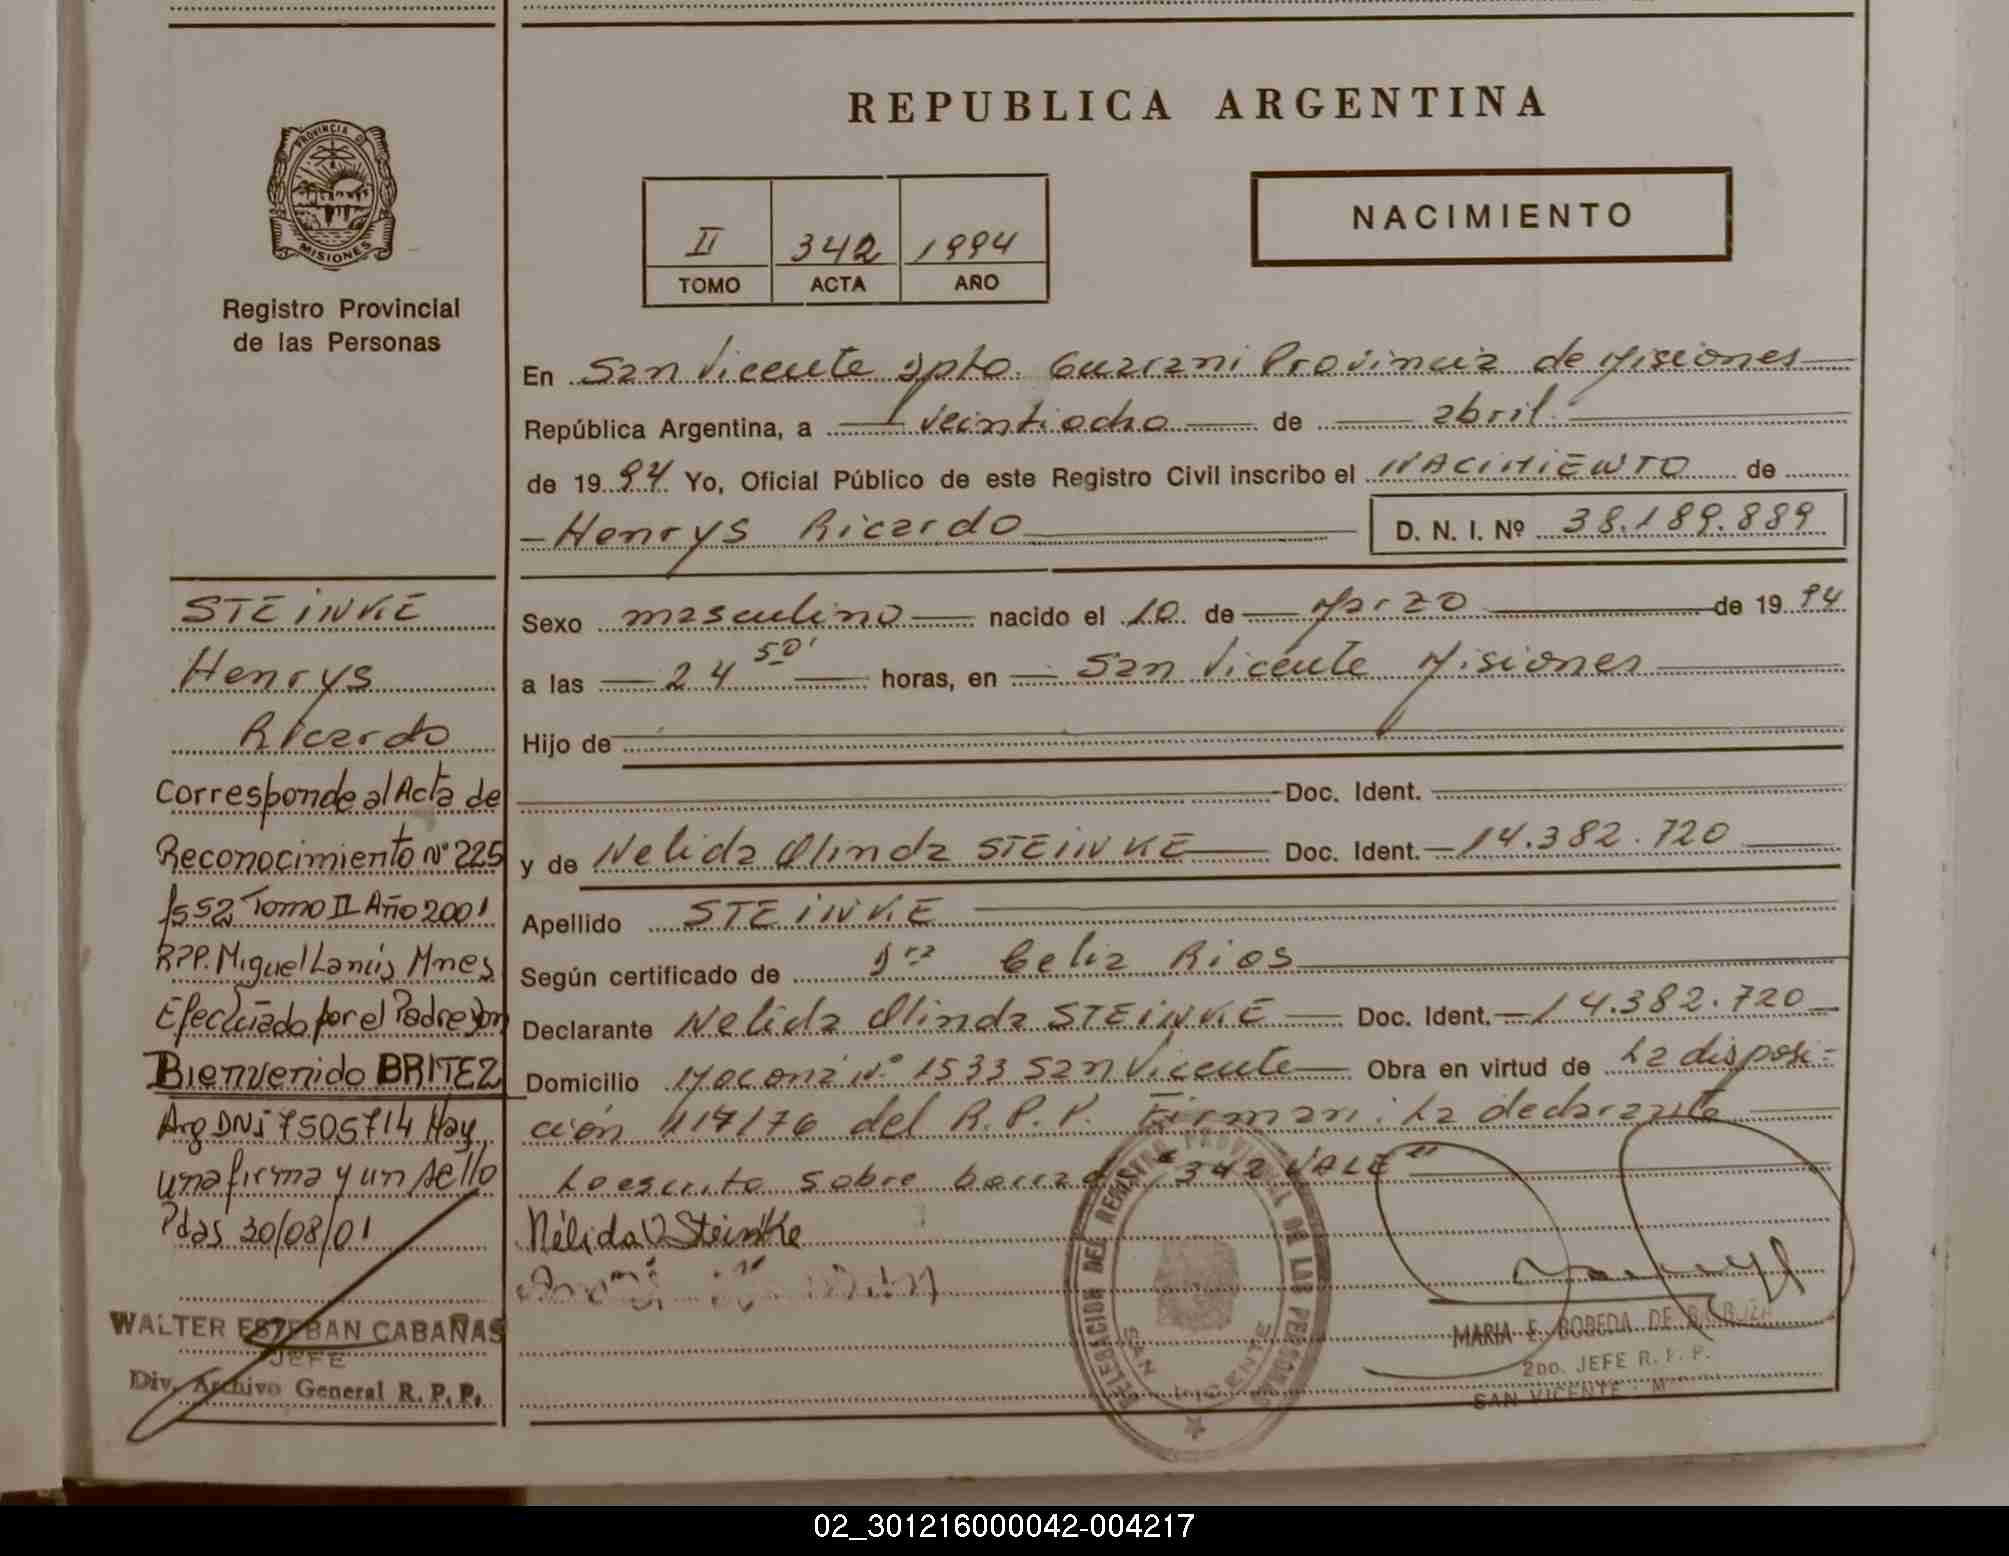 PROVINCIA DE
MISIONES
Registro Provincial
de las Personas
REPUBLICA ARGENTINA
II 342 1994
TOMO ACTA AÑO
NACIMIENTO
En San Vicente Dpto. Guarani Provincia de Misiones
República Argentina, a veintiocho de abril
de 1994 Yo, Oficial Público de este Registro Civil inscribo el NACIMIENTO de
Henrys Ricardo D. N. I. Nº 38.189.889
Sexo masculino nacido el 10 de Marzo de 1994
a las 24 50' horas, en San Vicente Misiones
Hijo de
Doc. Ident.
y de Nelida Olinda STEINKE Doc. Ident. 14.382.720
Apellido STEINKE
Según certificado de Dra Celia Rios
Declarante Nelida Olinda STEINKE Doc. Ident. 14.382.720
Domicilio Moconá Nº 1533 San Vicente Obra en virtud de La disposi-
ción 417/76 del R.P.P. Firman: La declarante
Lo escrito sobre borrado "342 VALE"
Nélida O Steinke
DELEGACION DEL REGISTRO PROVINCIAL DE LAS PERSONAS
SAN VICENTE
MARIA E. BOBEDA DE BARBOZA
2DO. JEFE R. P. P.
SAN VICENTE
STEINKE
Henrys
Ricardo
Corresponde al Acta de
Reconocimiento Nº 225
fs 52 Tomo II Año 2001
RPP. Miguel Lanús Mnes
Efectuado por el Padre Don
Bienvenido BRITEZ
Arg DNi 7505714 Hay
una firma y un sello
Pdas 30/08/01
WALTER ESTEBAN CABAÑAS
JEFE
Div. Archivo General R. P. P.
02_301216000042-004217